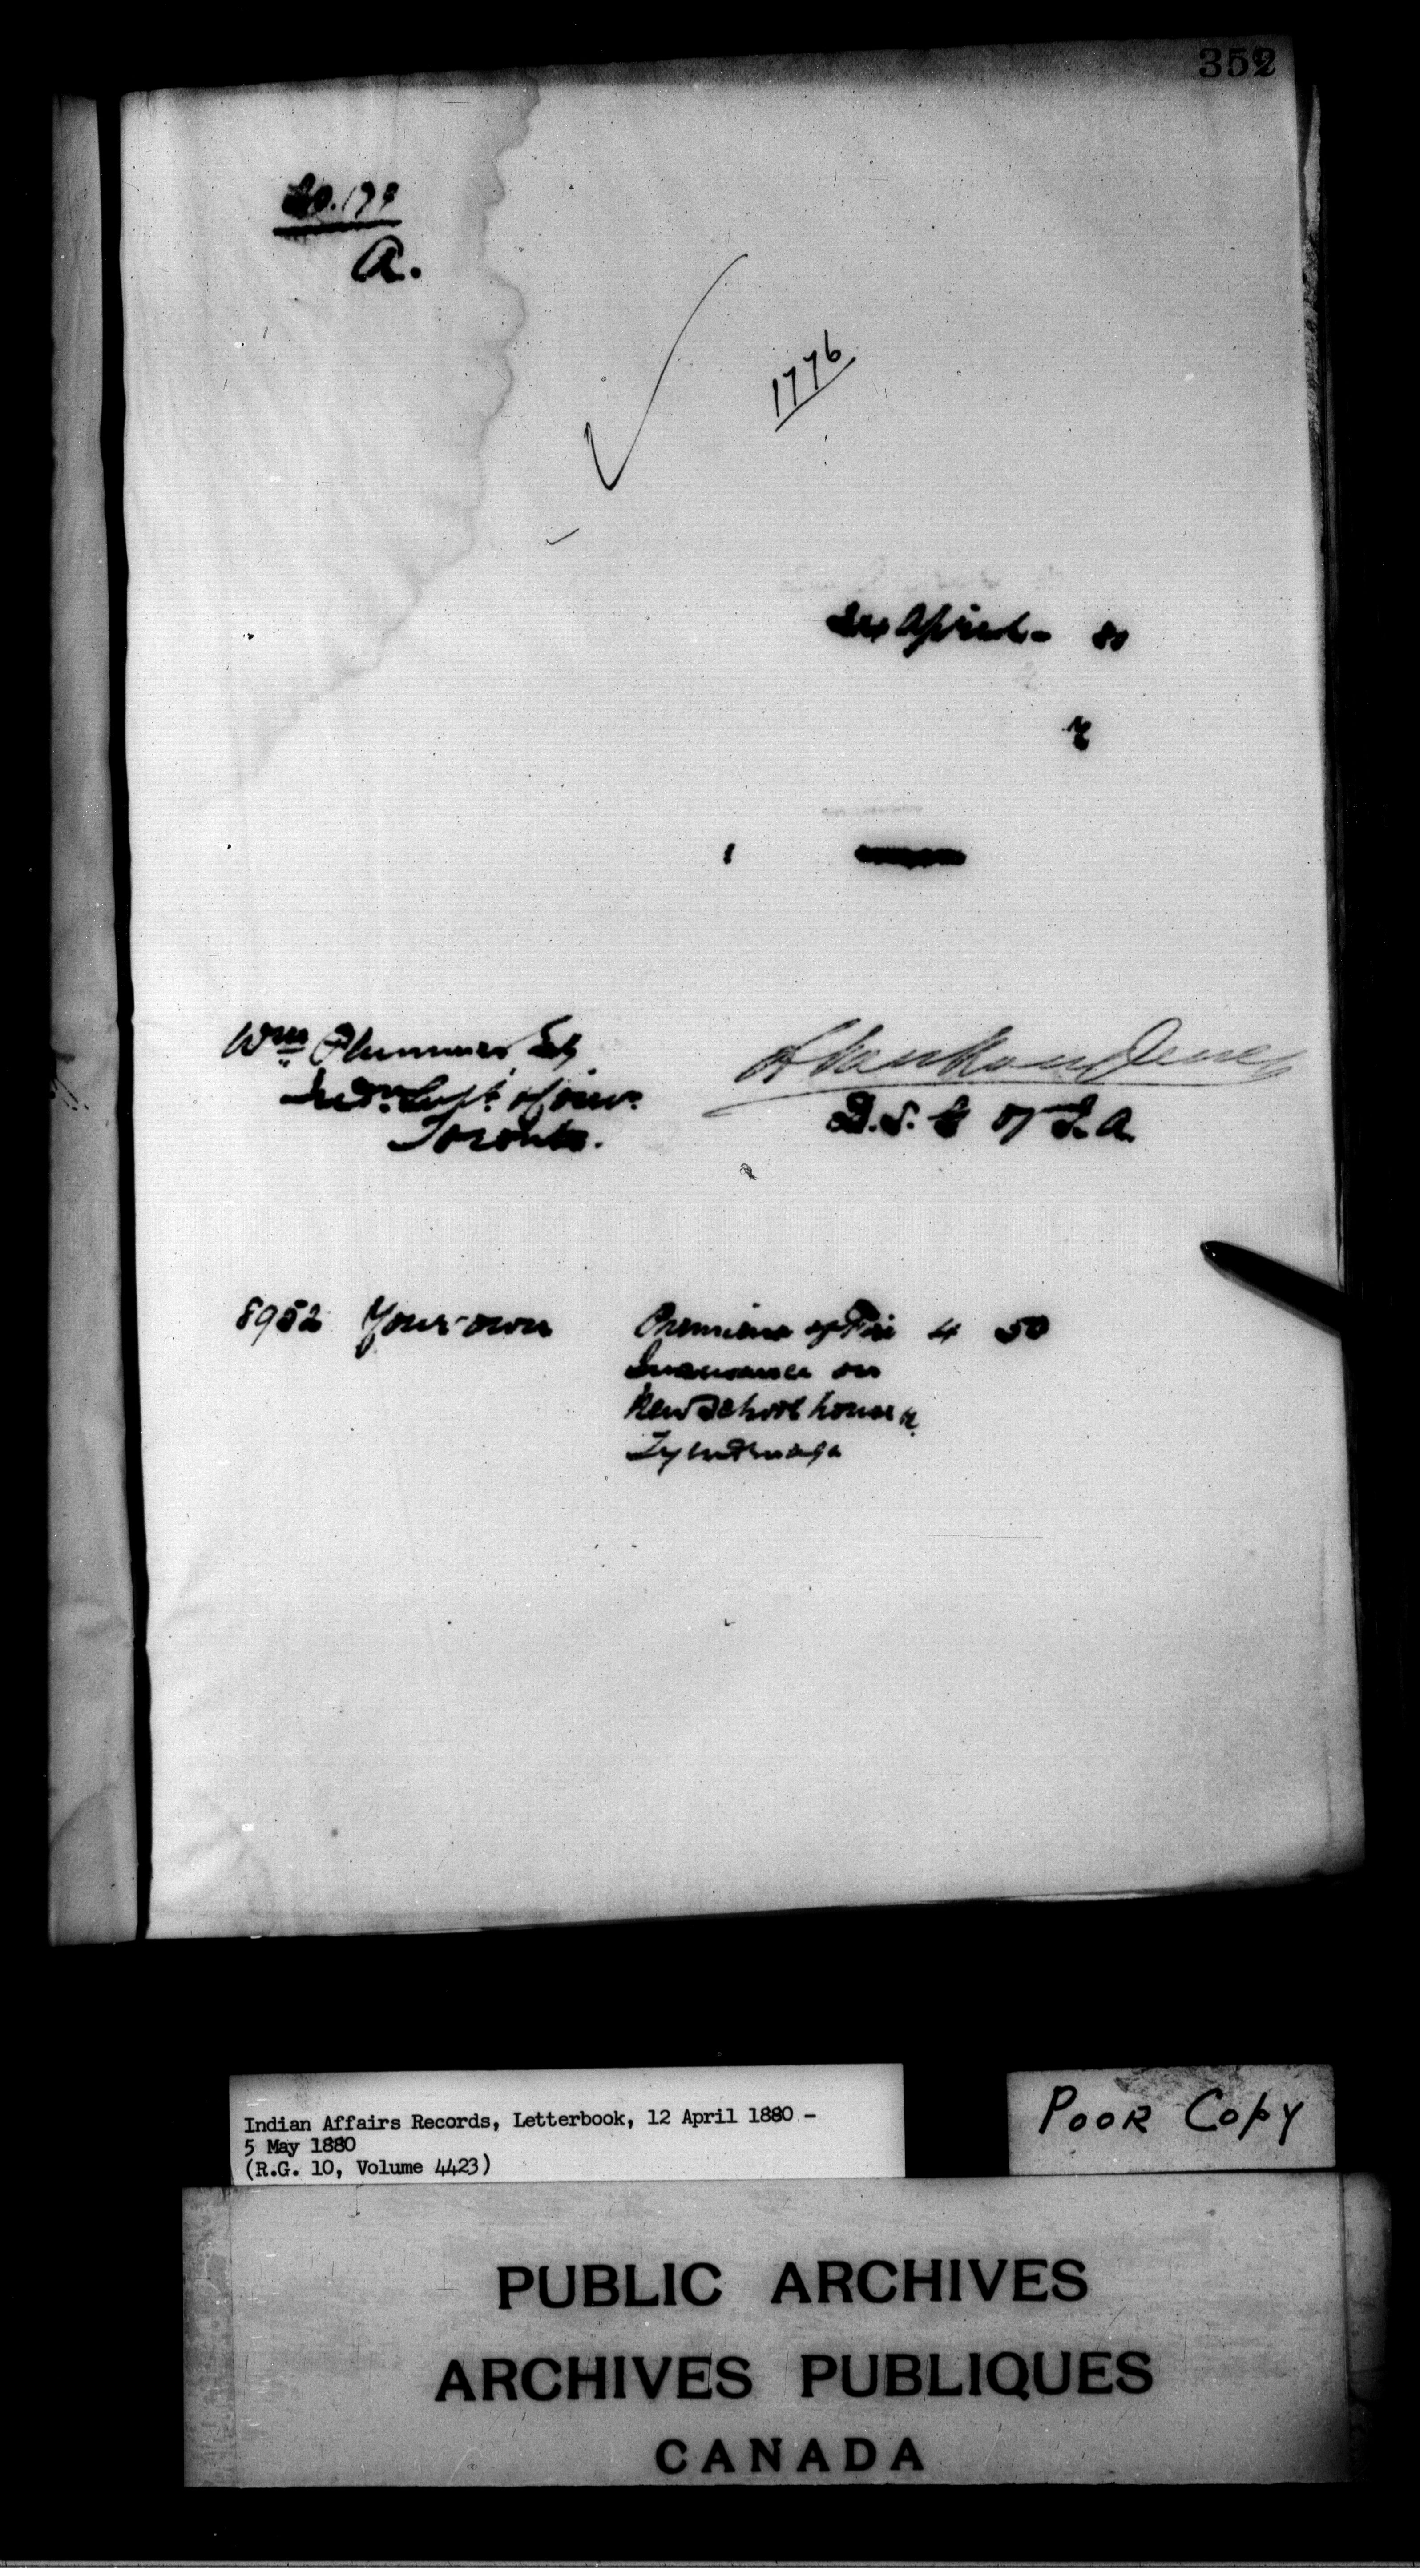 352
A.
1776
April - 80
Wm Plummer Esq
Toronto.
L Vankoughnet
D.S. G of I.A.
8952 Your own Premium of Fire 4 50
Insurance on
New School house
Tyendinaga
Indian Affairs Records, Letterbook, 12 April 1880 -
5 May 1880
(R.G. 10, Volume 4423)
POOR COPY
PUBLIC ARCHIVES
ARCHIVES PUBLIQUES
CANADA